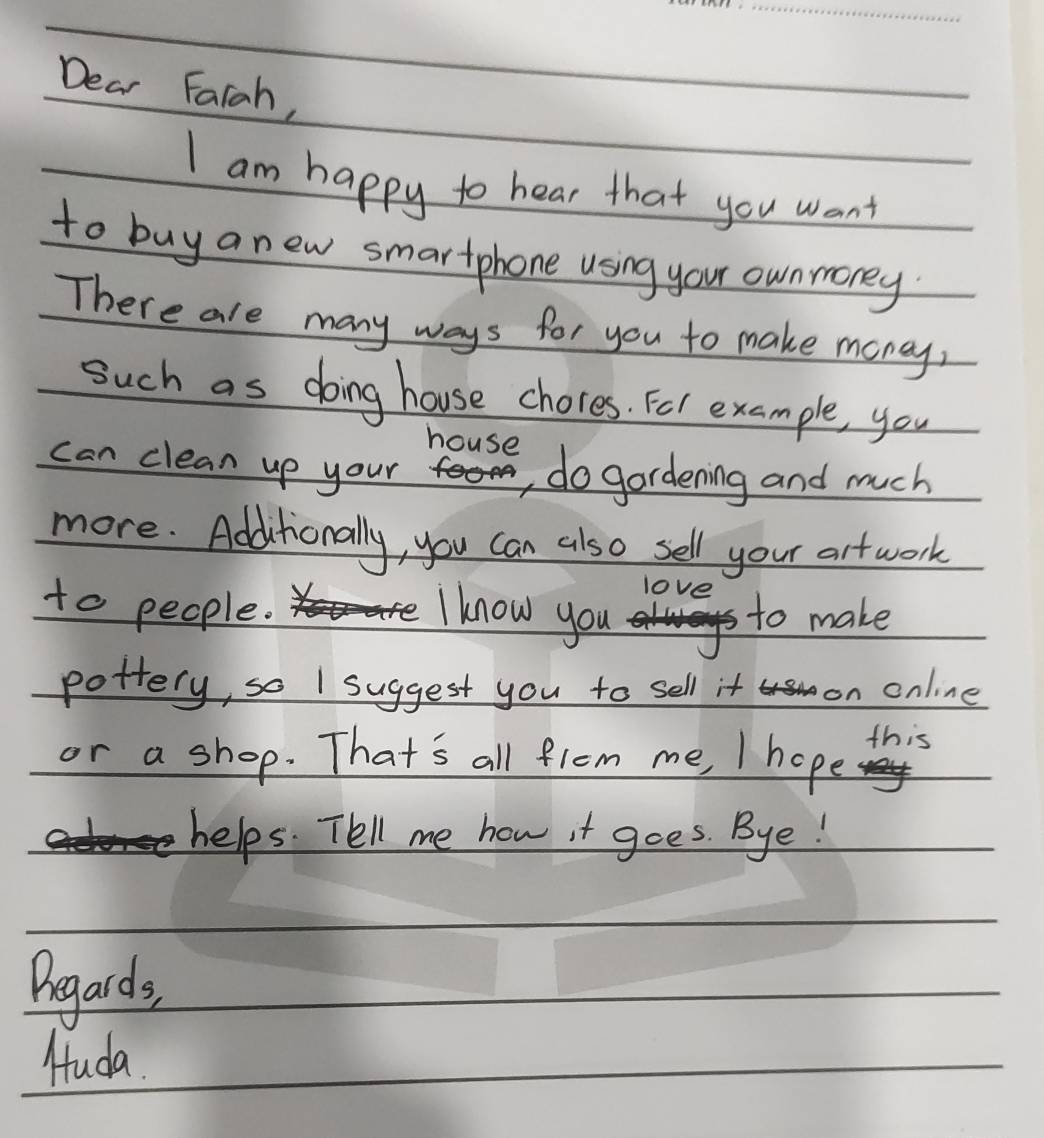 Dear Farah,
I am happy to hear that you want
to buy a new smartphone using your own money.
There are many ways for you to make money,
such as doing house chores. For example, you
can clean up your house, do gardening and much
more. Additionally, you can also sell your artwork
to people. I know you love to make
pottery, so I suggest you to sell it on online
or a shop. That's all from me, I hope this
helps. Tell me how it goes. Bye!
Regards,
Huda.